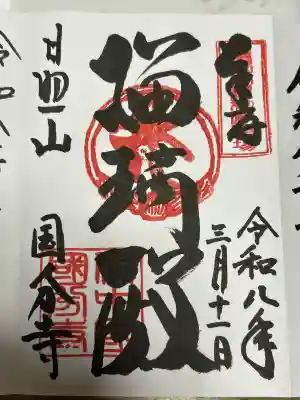 奉拝
令和八年
三月十一日
瑠璃殿
日照山
国分寺
國分寺